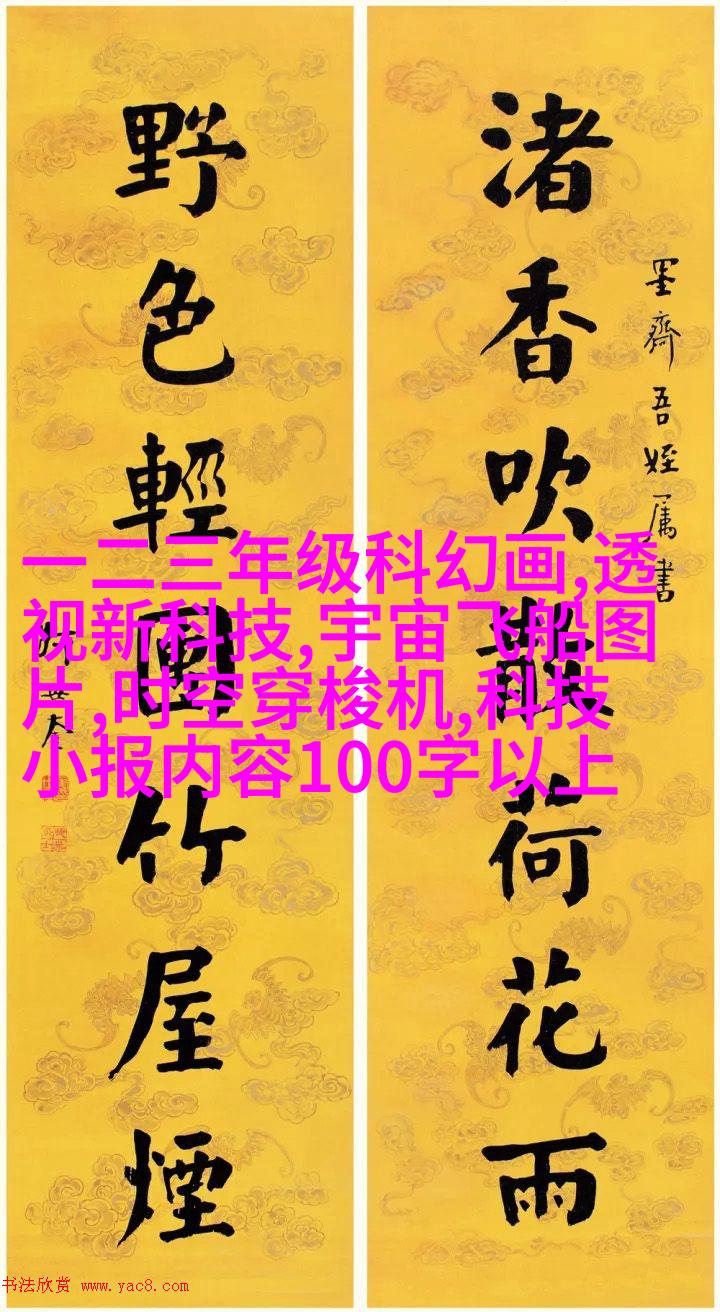 渚香吹散荷花雨
墨齋吾姪属書
野色輕團竹屋煙
徐世昌
一二三年级科幻画,透
视新科技,宇宙飞船图
片,时空穿梭机,科技
小报内容100字以上
书法欣赏 www.yac8.com